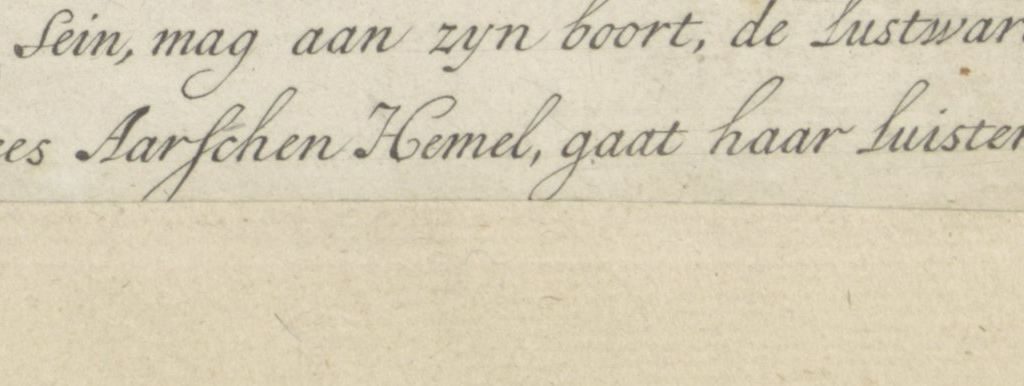 Sein, mag aan zyn boort, de Lustwar
es Aarschen Hemel, gaat haar luister